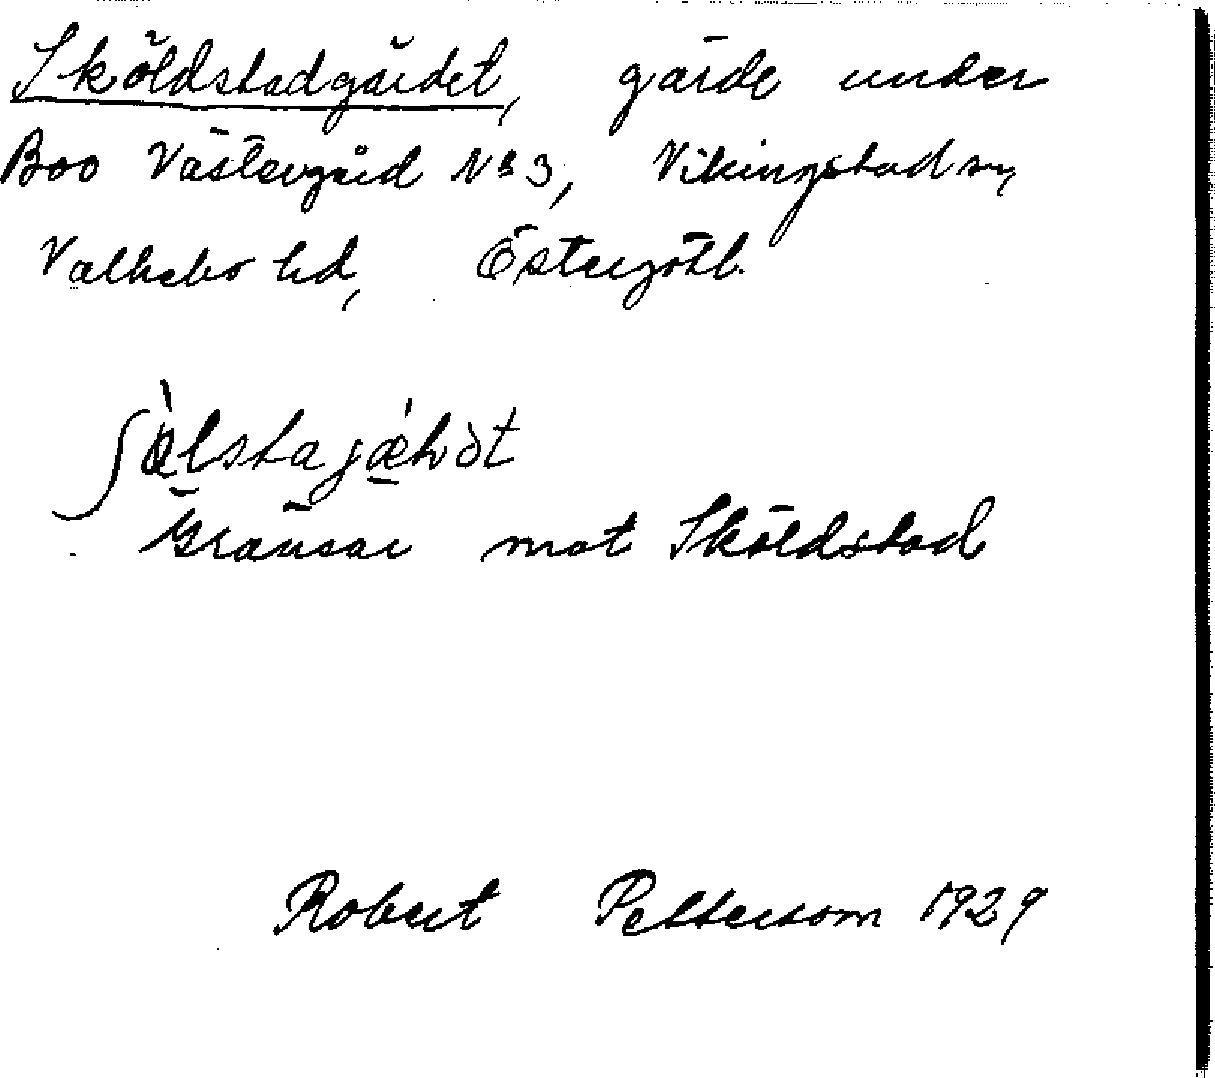 Sköldstadgärdet, gärde under
Boo Västergård No 3, Vikingstad sn,
Valkebo hd, Östergötl.
Gränsar mot Sköldstad
Robert Pettersom 1929